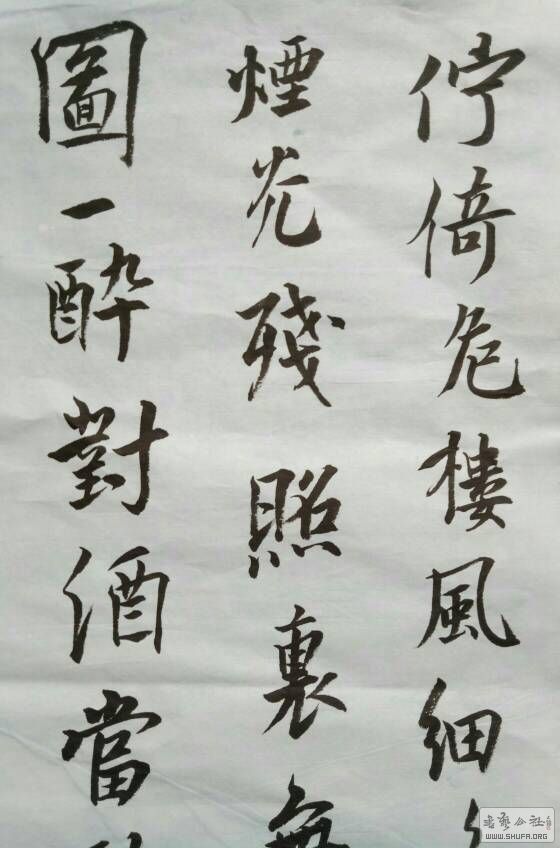 佇倚危樓風細
煙光殘照裏無
圖一醉對酒當
WWW.SHUFA.ORG